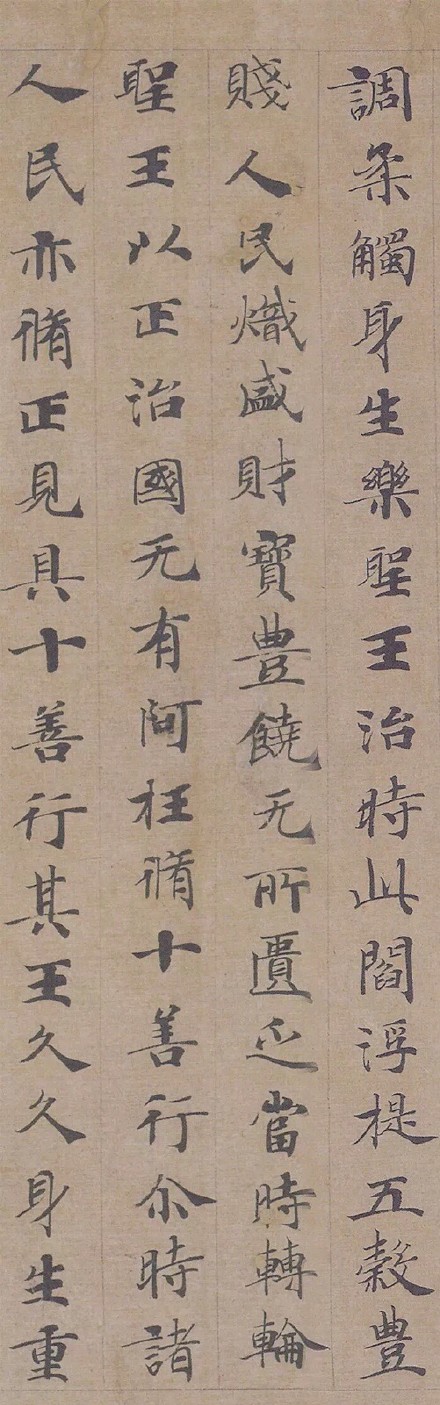 調柔觸身生樂聖王治時此閻浮提五穀豊
賤人民熾盛財寶豊饒无所匱乏當時轉輪
聖王以正治國无有阿枉脩十善行尒時諸
人民亦脩正見具十善行其王久久身生重